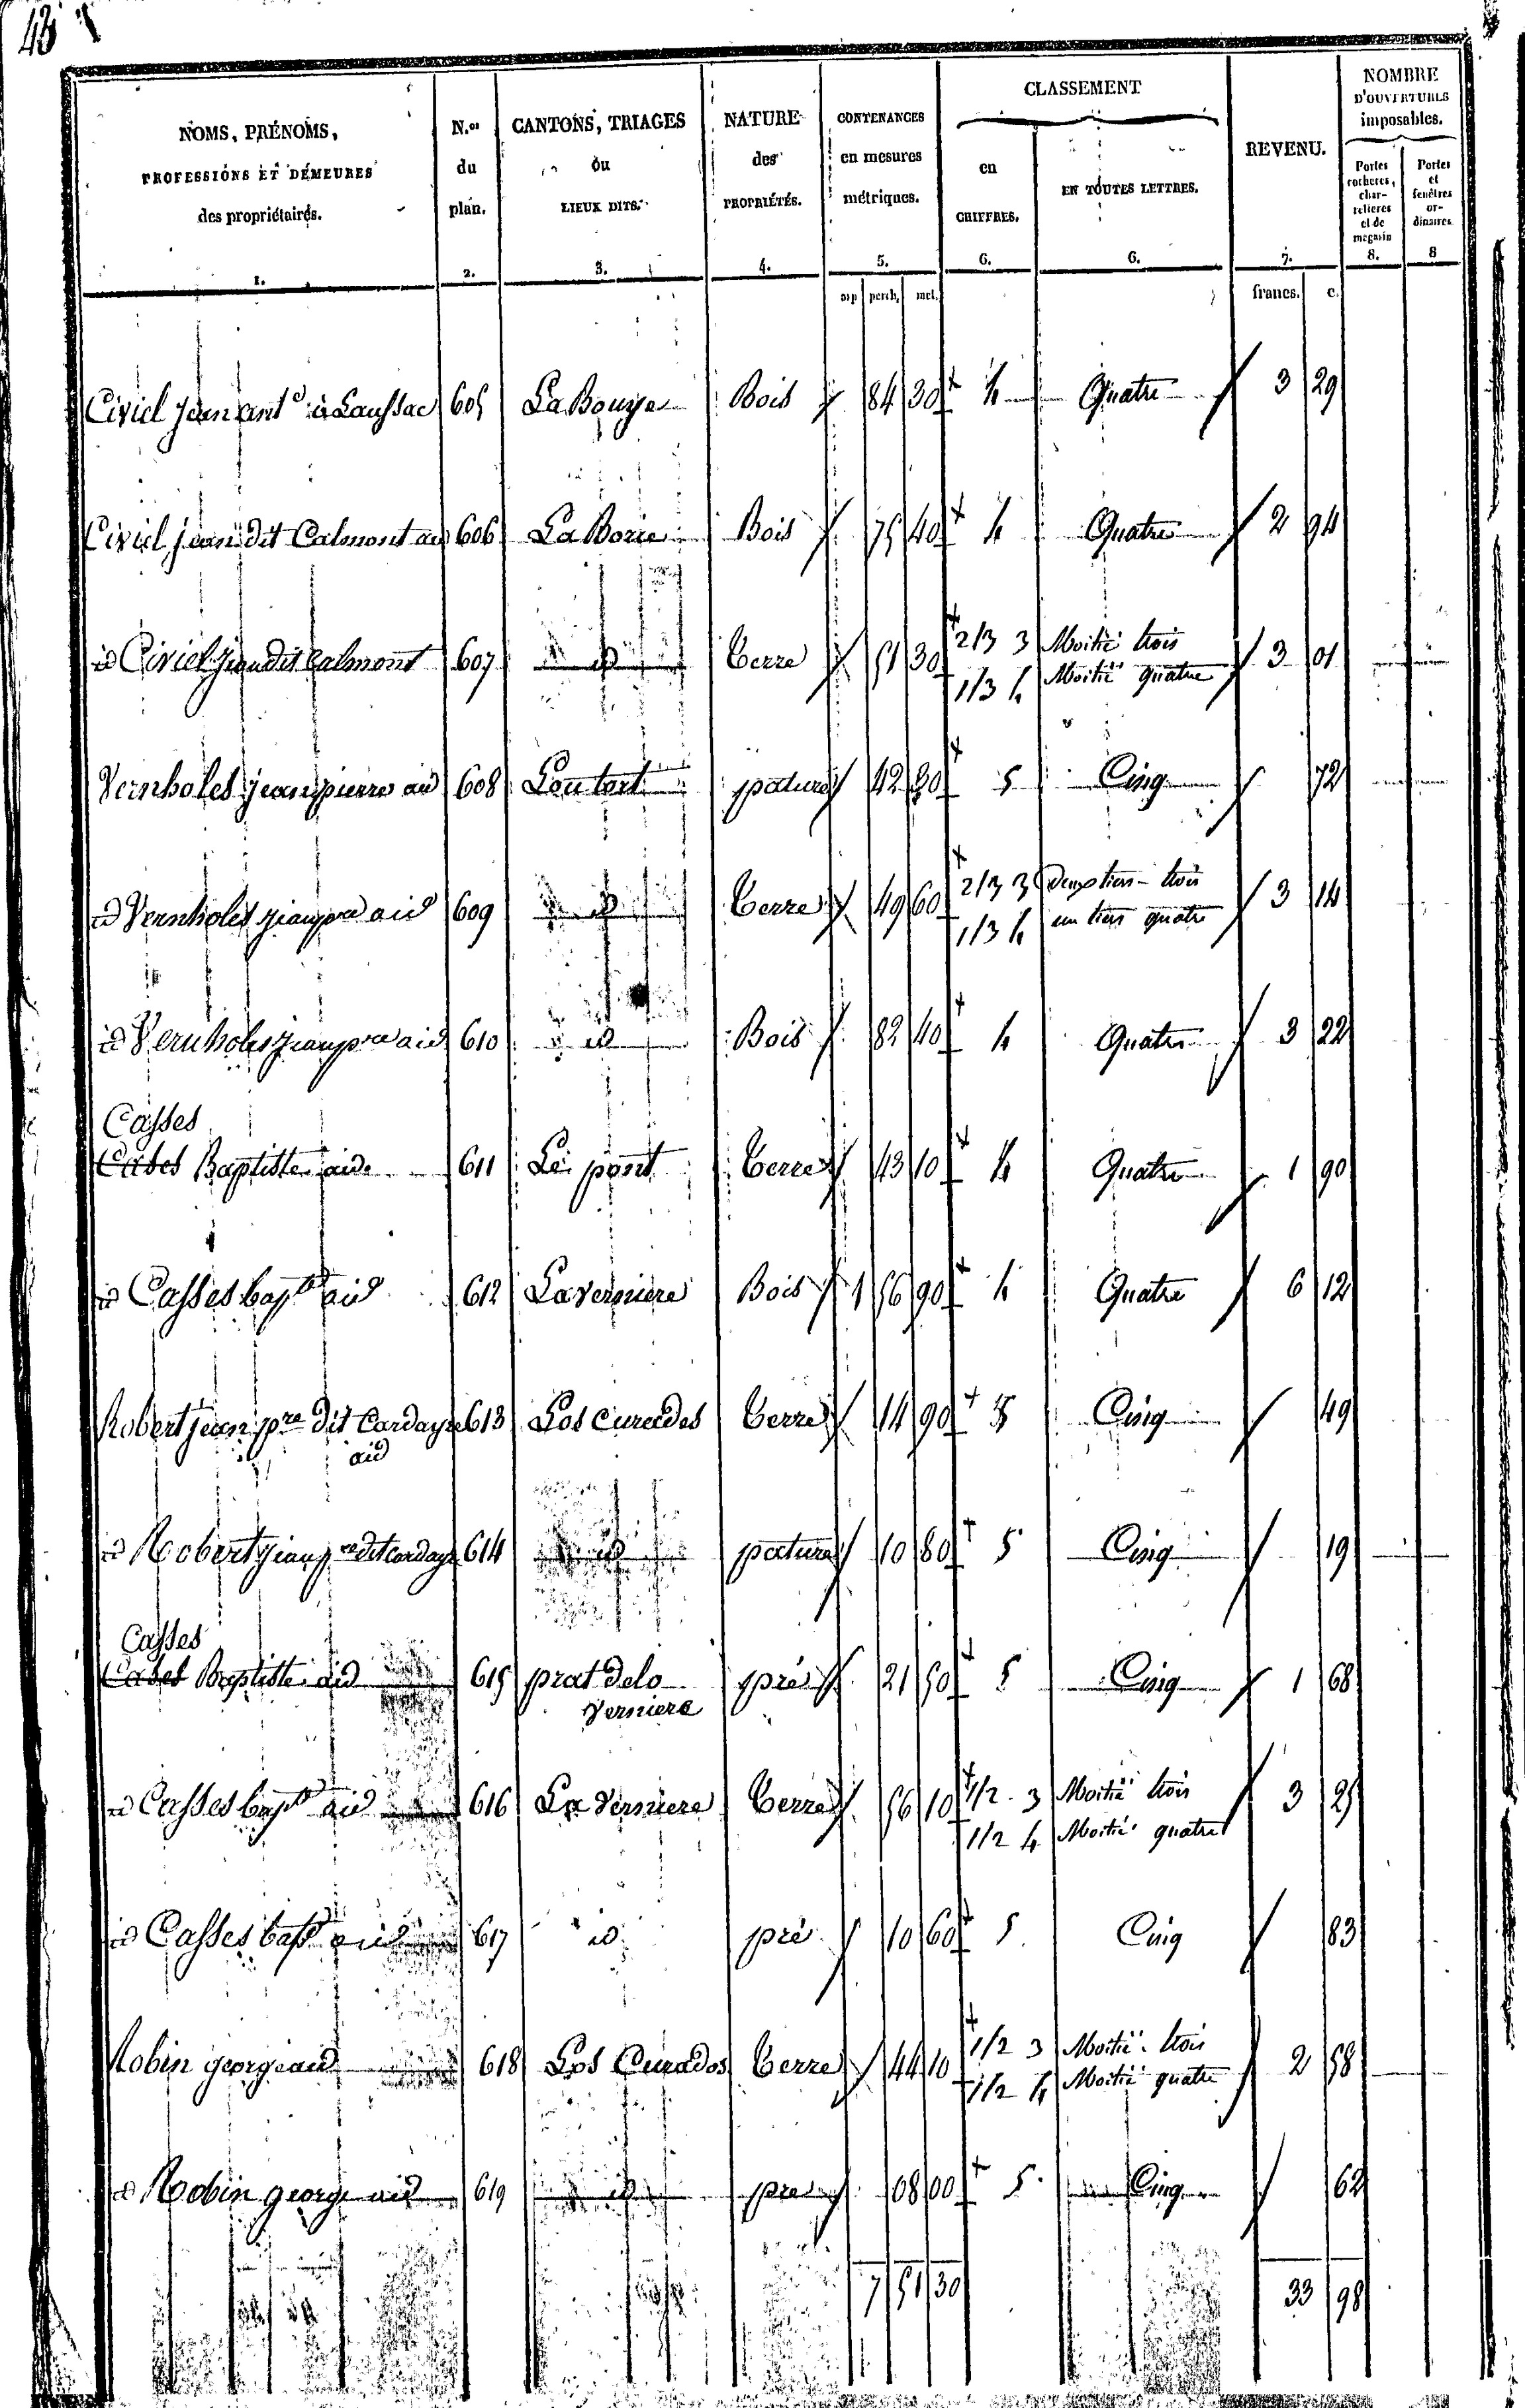 43
NOMS, PRÉNOMS, PROFESSIONS ET DEMEURES des propriétaires. 1.
N.os du plan. 2.
CANTONS, TRIAGES ou LIEUX DITS. 3.
NATURE des PROPRIÉTÉS. 4.
CONTENANCES en mesures métriques. 5.
CLASSEMENT
en CHIFFRES. 6.
EN TOUTES LETTRES. 6.
REVENU. 7.
NOMBRE D'OUVERTURES imposables.
Portes cocheres, charretieres et de magasin 8.
Portes et fenêtres ordinaires. 8
arp perch. met. francs. c.
Civiel jean ant.e à Laussac 605 La Bouye Bois 84 30 4 Quatre 3 29
Civiel jean dit Calmont au 606 La Borie Bois 75 40 4 Quatre 2 94
id Civiel jean dit Calmont 607 id Terre 51 30 2/3 3 Moitié trois 3 01
1/3 4 Moitié quatre
Vernholes jean pierre aud 608 Lou tert pature 42 80 5 Cinq 72
id Vernholes jean pre aid 609 id Terre 49 60 2/3 3 Deux tiers trois 3 14
1/3 4 un tiers quatre
id Vernholes jean pre aid 610 id Bois 82 40 4 Quatre 3 22
Casses
Cases Baptiste aid 611 Le pont Terre 43 10 4 Quatre 1 90
id Casses bapte aid 612 La verniere Bois 1 56 90 4 Quatre 6 12
Robert jean pre dit Cardayre 613 Los curades Terre 14 90 5 Cinq 49
aid
id Robert jean pre dit Cardayre 614 id pature 10 80 5 Cinq 19
Casses
Cases Baptiste aid 615 prat de lo pré 21 50 5 Cinq 1 68
verniere
id Casses bapte aid 616 La verniere Terre 56 10 1/2 3 Moitié trois 3 25
1/2 4 Moitié quatre
id Casses bapte aid 617 id pré 10 60 5 Cinq 83
Robin george aud 618 Los Curados Terre 44 10 1/2 3 Moitié trois 2 58
1/2 4 Moitié quatre
id Robin george aid 619 id pre 08 00 5 Cinq 62
7 51 30 33 98